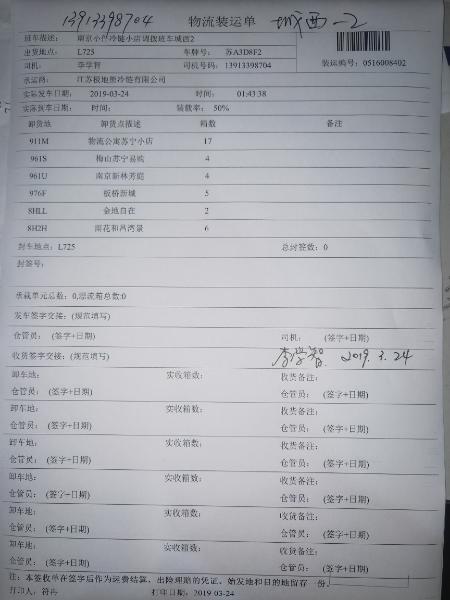 13913398704 物流装运单 城西-2
班车描述： 南京小件冷链小店调拨班车城西2
出发地点： L725 车牌号： 苏A3D8F2
司机： 李学智 司机号码：13913398704 装运编号：0516008402
承运商： 江苏极地熊冷链有限公司
实际发车日期： 2019-03-24 时间： 01:43:38
实际到车日期： 时间： 装载率： 50%
卸货地 卸货点描述 箱数 备注
911M 物流公寓苏宁小店 17
961S 梅山苏宁易购 4
961U 南京新林芳庭 4
976F 板桥新城 5
8HLL 金地自在 2
8H2H 雨花和昌湾景 6
封车地点：L725 总封签数：0
封签号：
承载单元总数：0,漂流箱总数:0
发车签字交接：(规范填写)
仓管员： (签字+日期) 司机： (签字+日期)
收货签字交接：(规范填写) 李学智 2019.3.24
卸车地： 实收箱数： 收货备注：
仓管员： (签字+日期) 仓管员： (签字+日期)
卸车地： 实收箱数： 收货备注：
仓管员： (签字+日期) 仓管员： (签字+日期)
卸车地： 实收箱数： 收货备注：
仓管员： (签字+日期) 仓管员： (签字+日期)
卸车地： 实收箱数： 收货备注：
仓管员： (签字+日期) 仓管员： (签字+日期)
卸车地： 实收箱数： 收货备注：
仓管员： (签字+日期) 仓管员： (签字+日期)
卸车地： 实收箱数： 收货备注：
仓管员： (签字+日期) 仓管员： (签字+日期)
注：本签收单在签字后作为运费结算、出险理赔的凭证，始发地和目的地留存一份。
打印人：符冉 打印日期：2019-03-24